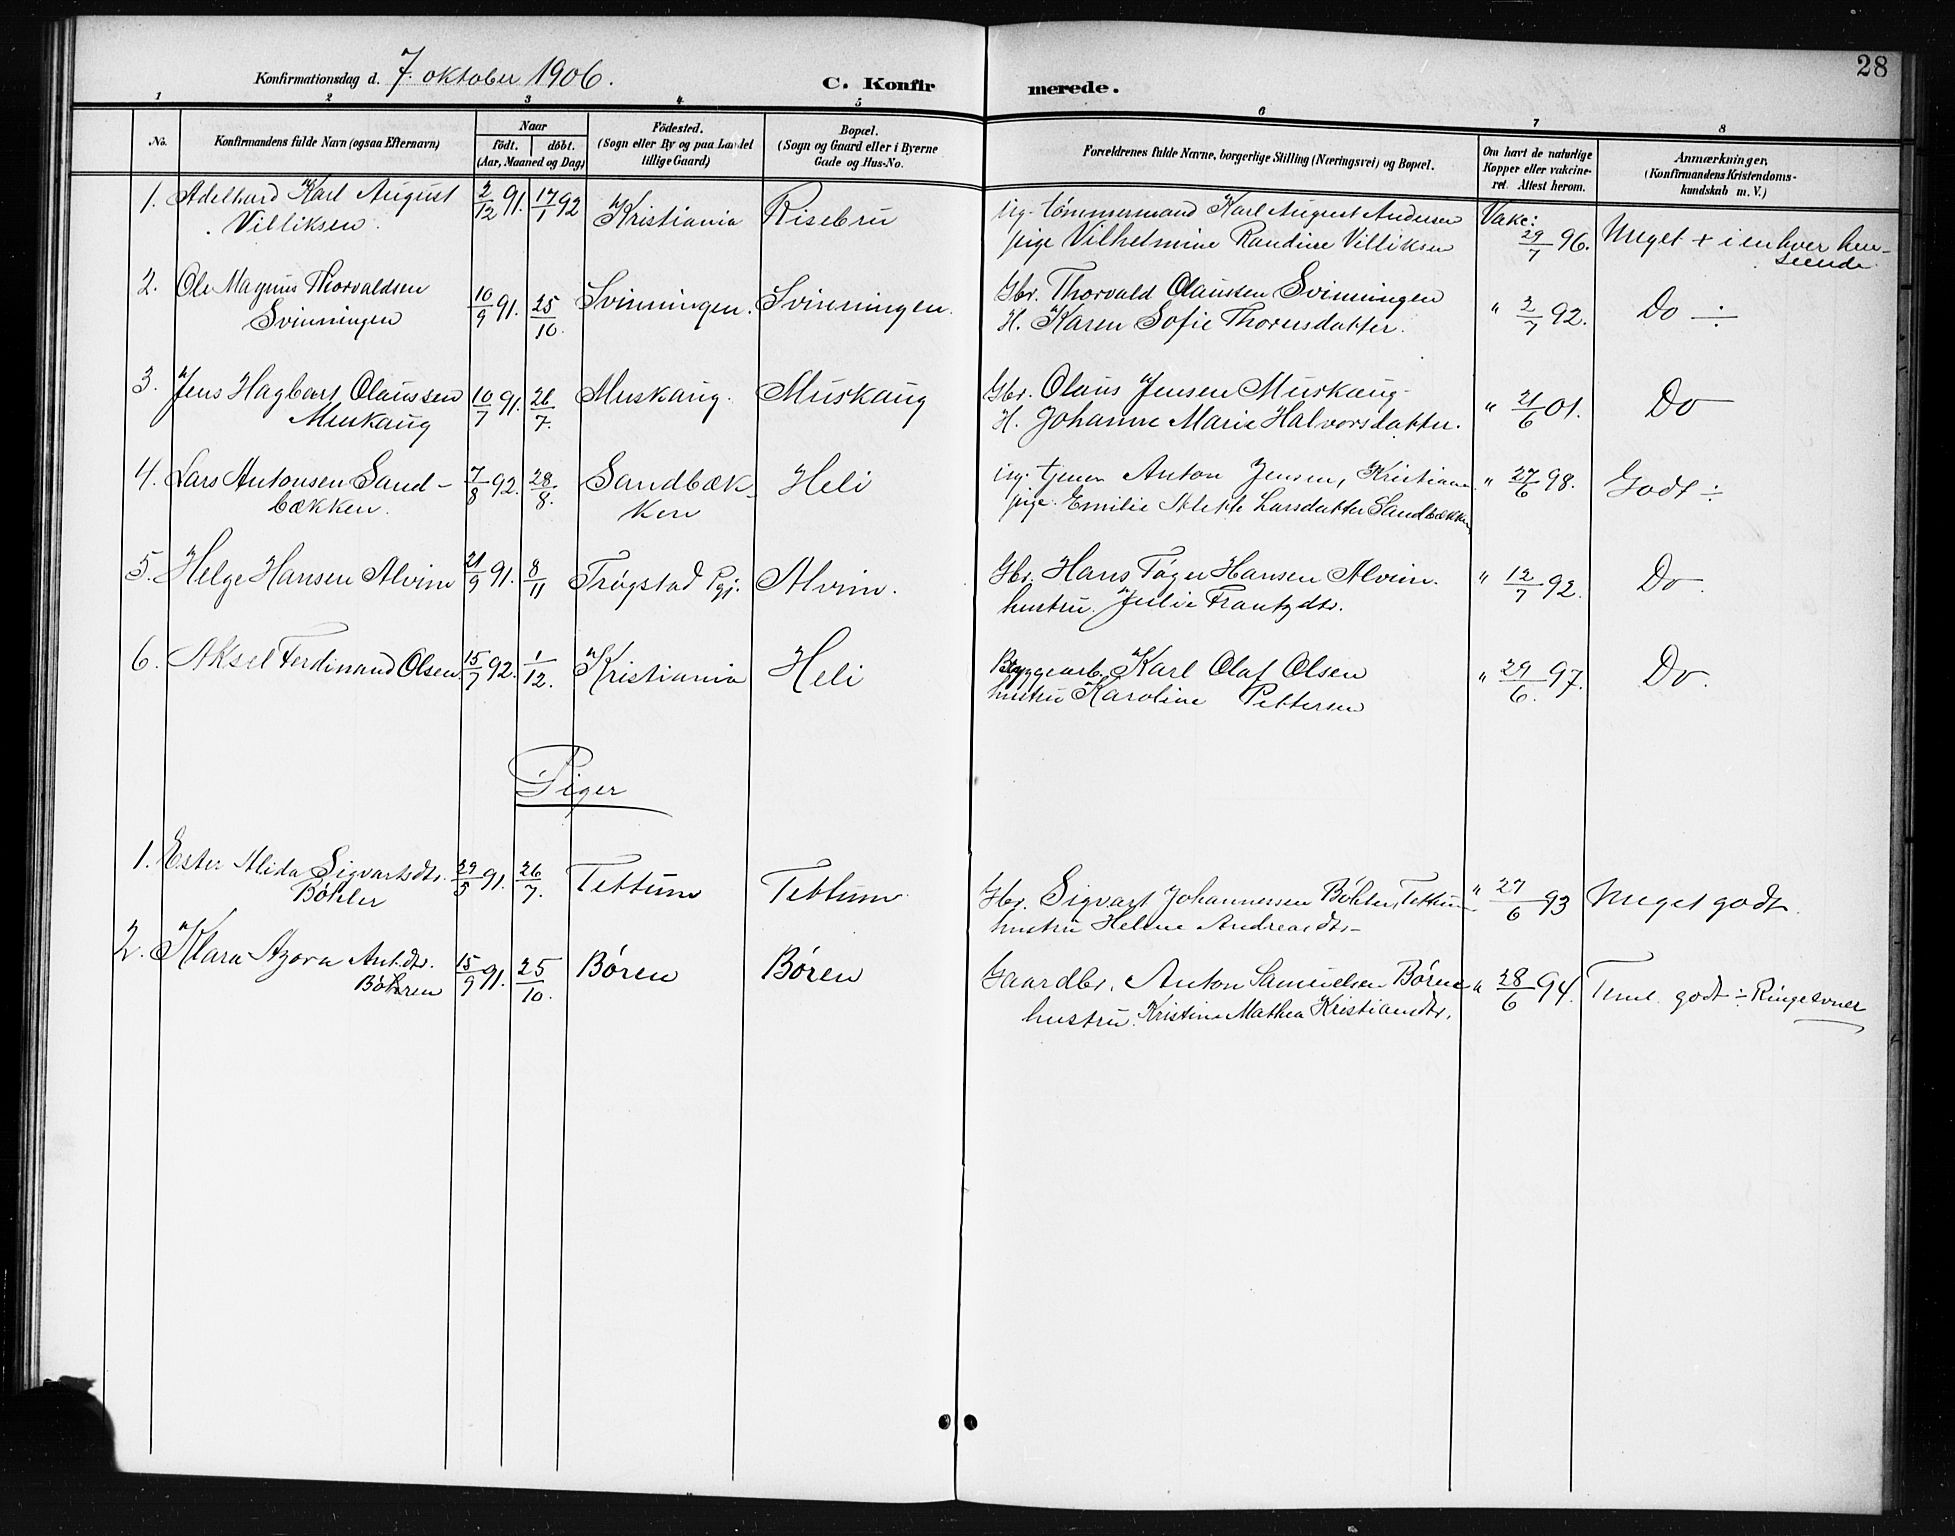 28
Konfirmationsdag d. 7. oktober 1906.
C. Konfirmerede.
1 2 3 4 5 6 7 8
No.
Konfirmandens fulde Navn (ogsaa Efternavn)
Naar
födt. döbt.
(Aar, Maaned og Dag)
Födested.
(Sogn eller By og paa Landet
tillige Gaard)
Bopæl.
(Sogn og Gaard eller i Byerne
Gade og Hus-No.
Forældrenes fulde Navne, borgerlige Stilling (Næringsvei) og Bopæl.
Om havt de naturlige
Kopper eller vakcine-
ret. Attest herom.
Anmærkninger,
(Konfirmandens Kristendoms-
kundskab m. V.)
1. Adelhard Karl August 2/12 91. 17/1 92 Kristiania Risebru ug. tömmermand Karl August Andersen Vakc: 29/7 96. Meget + i enhver hen-
Villiksen. pige Vilhelmine Randine Villiksen seende.
2. Ole Magnus Thorvaldsen 10/9 91. 25/10. Svinningen. Svinningen. Gbr. Thorvald Claussen Svinningen " 2/7 92. Do ÷
Svinningen H. Karen Sofie Thorersdatter.
3. Jens Hagbart Olaussen 10/7 91. 26/7. Muskaug. Muskaug Gbr. Olaus Jensen Muskaug " 21/6 01. Do
Muskaug H. Johanne Marie Halvorsdatter.
4. Lars Antonsen Sand- 7/8 92. 28/8. Sandbæk- Heli ug. tjener Anton Jensen, Kristiania " 27/6 98. Godt ÷
bækken. ken pige. Emilie Larsdatter Sandbækken
5. Helge Hansen Alvim 21/9 91. 8/11 Trøgstad Pgj. Alvim. Gbr. Hans Tøger Hansen Alvim. " 12/7 92. Do.
hustru. Julie Frantzdtr.
6. Aksel Ferdinand Olsen 15/7 92. 1/12. Kristiania Heli Byggearb. Karl Olaf Olsen " 29/6. 97. Do.
hustru Karoline Pettersen
Piger
1. Ester Alida Sigvartsdtr. 29/5 91. 26/7. Tettum Tettum. Gbr. Sigvart Johannessen Böhler, Tettum " 27/6 93 Meget godt.
Böhler hustru Helene Andreasdtr.
2. Klara Azora Ant.dtr. 15/9 91. 25/10. Børen Børen Gaardbr. Anton Samuelsen Børen " 28/6 94. Teml. godt ÷ Ringe evner
Børen hustru. Kristine Mathea Kristiansdtr.